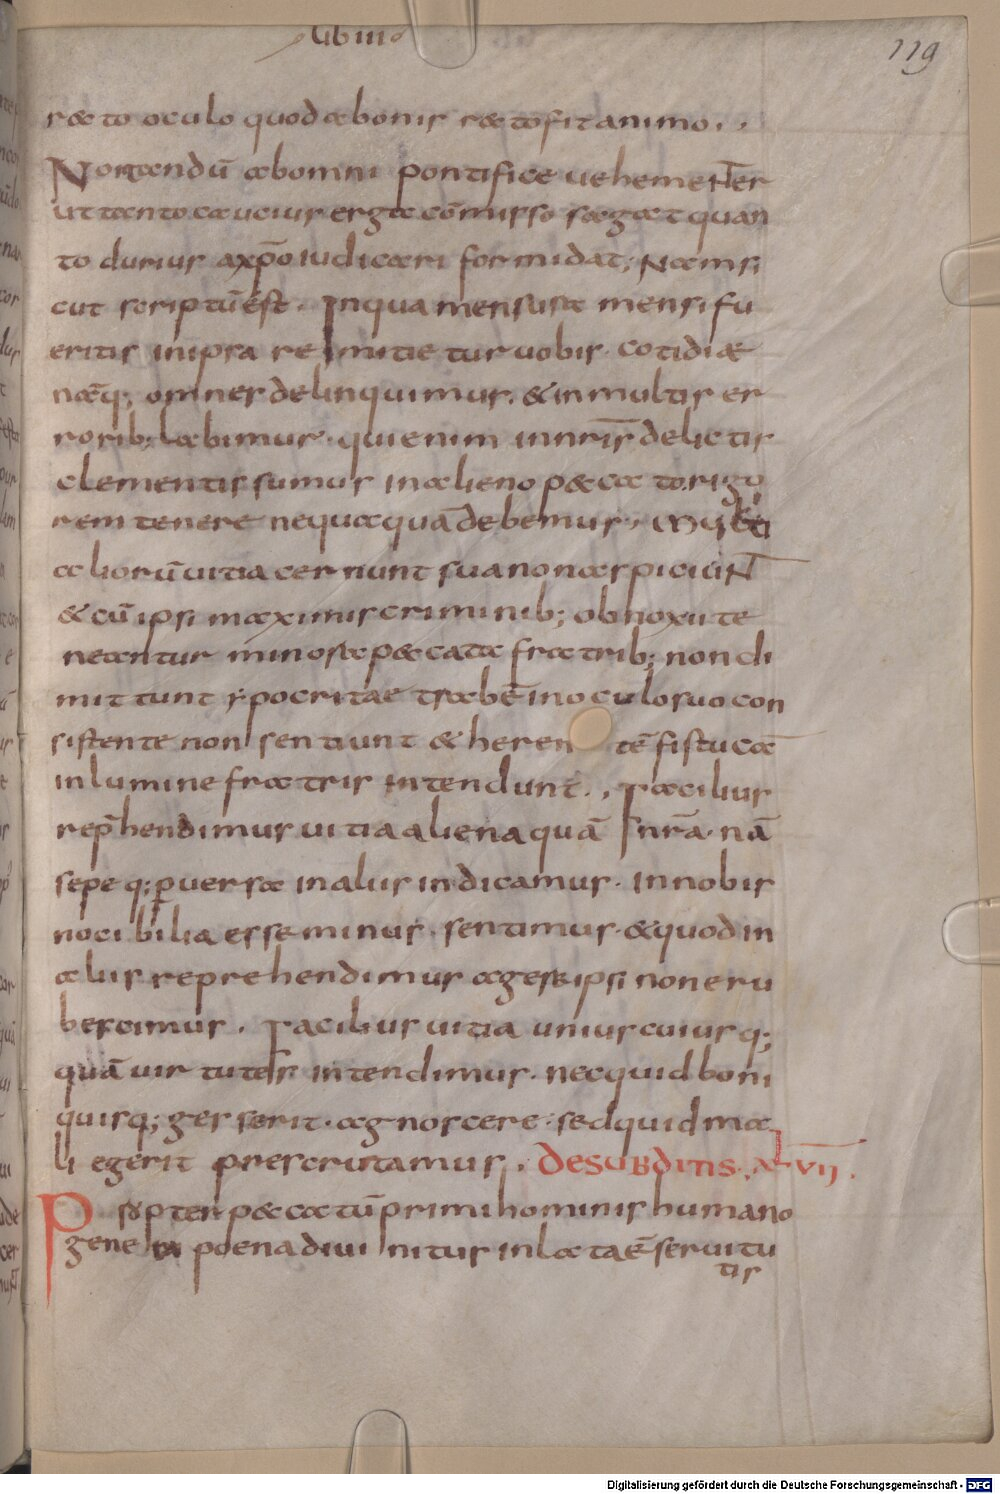 lib iii
119
rato oculo quod a bonis ratofit animo.,
Nortandū ab omni pontifice uehementer
ut tanto cautius erga cōmisso sagat quan
to durius a xp̄o iudicari formidat; Nam si
cut scriptū est. In qua mensura mensi fu
eritis in ipsa remitietur uobis. Cotidiæ
namq; omnes delinquimus. & in multis er
rorib; labimur. qui enim in nr̄is delictis
clementis sumus in alieno peccato rigo
rem tenere nequaquā debemus,
aliorū uitia cernunt sua non aspiciunt
& cū ipsi maximis criminib; obnoxii te
neantur minora peccata fratrib; non di
mittunt ypocritae trabē in oculo suo con
sistente non sentiunt & heren tē fistucā
in lumine fratris intendunt., Facilius
rep̄hendimus uitia aliena quā nr̄a. nā
sepe q; peruersa in aliis indicamus. In nobis
nocibilia esse minus. sentimus. & quod in
aliis reprehendimus agere ipsi non eru
bescimus. Facilius uitia unius cuiusq;
quā uirtutes intendimus. nec quid boni
quisq; gesserit. agnoscere. sed quid ma
li egerit prescrutamus. DE SUBDITIS. XLVII.
Propter peccatū primi hominis humano
generi poena diuinitus inlata ē seruitu
tis
Digitalisierung gefördert durch die Deutsche Forschungsgemeinschaft - DFG